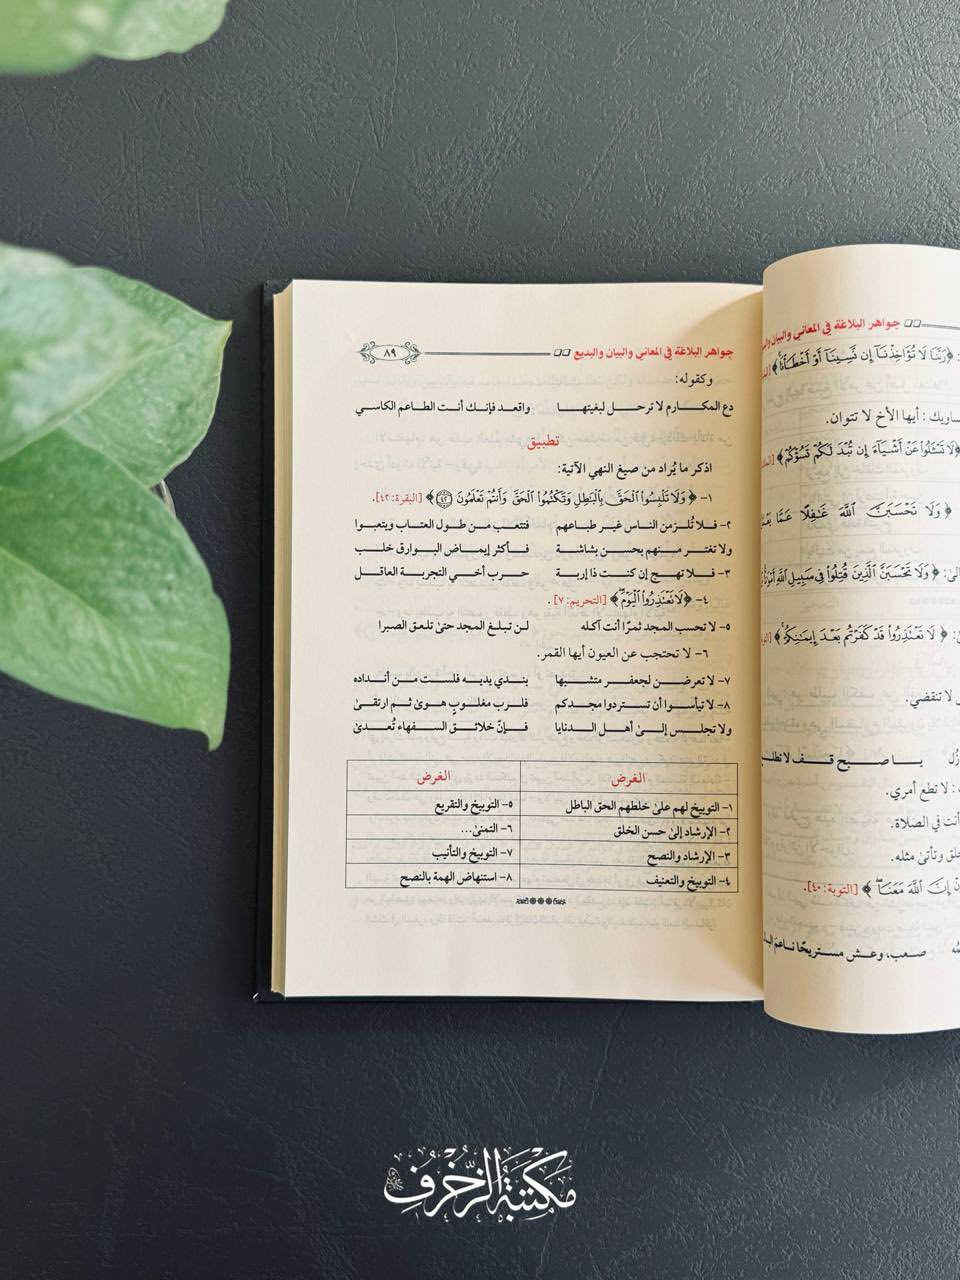 جواهر البلاغة في المعاني والبيان
﴿رَبَّنَا لَا تُؤَاخِذْنَا إِن نَّسِينَا أَوْ أَخْطَأْنَا﴾
أيها الأخ لا تتوان.
﴿لَا تَسْأَلُوا عَنْ أَشْيَاءَ إِن تُبْدَ لَكُمْ تَسُؤْكُمْ﴾
﴿وَلَا تَحْسَبَنَّ اللَّهَ غَافِلًا عَمَّا
﴿وَلَا تَحْسَبَنَّ الَّذِينَ قُتِلُوا فِي سَبِيلِ اللَّهِ
﴿لَا تَعْتَذِرُوا قَدْ كَفَرْتُم بَعْدَ إِيمَانِكُمْ﴾
لا تنقضي.
يا صبح قف لا تطلع
لا تطع أمري.
أنت في الصلاة.
وتأتي مثله.
إِنَّ اللَّهَ مَعَنَا﴾ [التوبة: ٤٠].
صعب، وعش مستريحًا ناعم
جواهر البلاغة في المعاني والبيان والبديع ٨٩
وكقوله:
دع المكارم لا ترحل لبغيتها واقعد فإنك أنت الطاعم الكاسي
تطبيق
اذكر ما يُراد من صيغ النهي الآتية:
١- ﴿وَلَا تَلْبِسُوا الْحَقَّ بِالْبَاطِلِ وَتَكْتُمُوا الْحَقَّ وَأَنتُمْ تَعْلَمُونَ ٤٢﴾ [البقرة: ٤٢].
٢- فلا تُلزمن الناس غير طباعهم فتتعب من طول العتاب ويتعبوا
ولا تغتر منهم بحسن بشاشة فأكثر إيماض البوارق خلب
٣- فلا تهج إن كنت ذا إربة حرب أخي التجربة العاقل
٤- ﴿لَا تَعْتَذِرُوا الْيَوْمَ﴾ [التحريم: ٧].
٥- لا تحسب المجد تمرًا أنت آكله لن تبلغ المجد حتىٰ تلعق الصبرا
٦- لا تحتجب عن العيون أيها القمر.
٧- لا تعرضن لجعفر متشبها بندي يديه فلست من أنداده
٨- لا تيأسوا أن تستردوا مجدكم فلرب مغلوبٍ هوىٰ ثم ارتقىٰ
ولا تجلس إلىٰ أهل الدنايا فإنّ خلائق السفهاء تُعدىٰ
الغرض الغرض
١- التوبيخ لهم علىٰ خلطهم الحق الباطل ٥- التوبيخ والتقريع
٢- الإرشاد إلىٰ حسن الخلق ٦- التمنىٰ...
٣- الإرشاد والنصح ٧- التوبيخ والتأنيب
٤- التوبيخ والتعنيف ٨- استنهاض الهمة بالنصح
مكتبة الزخرف